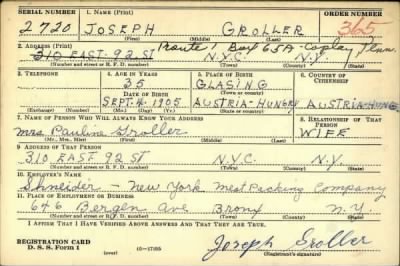 SERIAL NUMBER 1. NAME (Print) ORDER NUMBER
2720 JOSEPH GROLLER 365
(First) (Middle) (Last)
2. ADDRESS (Print) Route 1 Box 65A - Coplay Penn.
310 EAST 92 ST N.Y.C. N.Y.
(Number and street or R. F. D. number) (Town) (County) (State)
3. TELEPHONE 4. AGE IN YEARS 5. PLACE OF BIRTH 6. COUNTRY OF CITIZENSHIP
35 GLASING
DATE OF BIRTH (Town or county)
SEPT. 4 1905 AUSTRIA-HUNGRY AUSTRIA-HUNG
(Exchange) (Number) (Mo.) (Day) (Yr.) (State or country)
7. NAME OF PERSON WHO WILL ALWAYS KNOW YOUR ADDRESS 8. RELATIONSHIP OF THAT PERSON
Mrs. Pauline Groller WIFE
(Mr., Mrs., Miss) (First) (Middle) (Last)
9. ADDRESS OF THAT PERSON
310 EAST 92 ST N.Y.C. N.Y.
(Number and street or R. F. D. number) (Town) (County) (State)
10. EMPLOYER'S NAME
Shneider - New York Meat Packing Company
11. PLACE OF EMPLOYMENT OR BUSINESS
646 Bergen Ave Bronx N.Y
(Number and street or R. F. D. number) (Town) (County) (State)
I AFFIRM THAT I HAVE VERIFIED ABOVE ANSWERS AND THAT THEY ARE TRUE.
REGISTRATION CARD
D. S. S. Form 1 (over) 16-17105 Joseph Groller
(Registrant's signature)